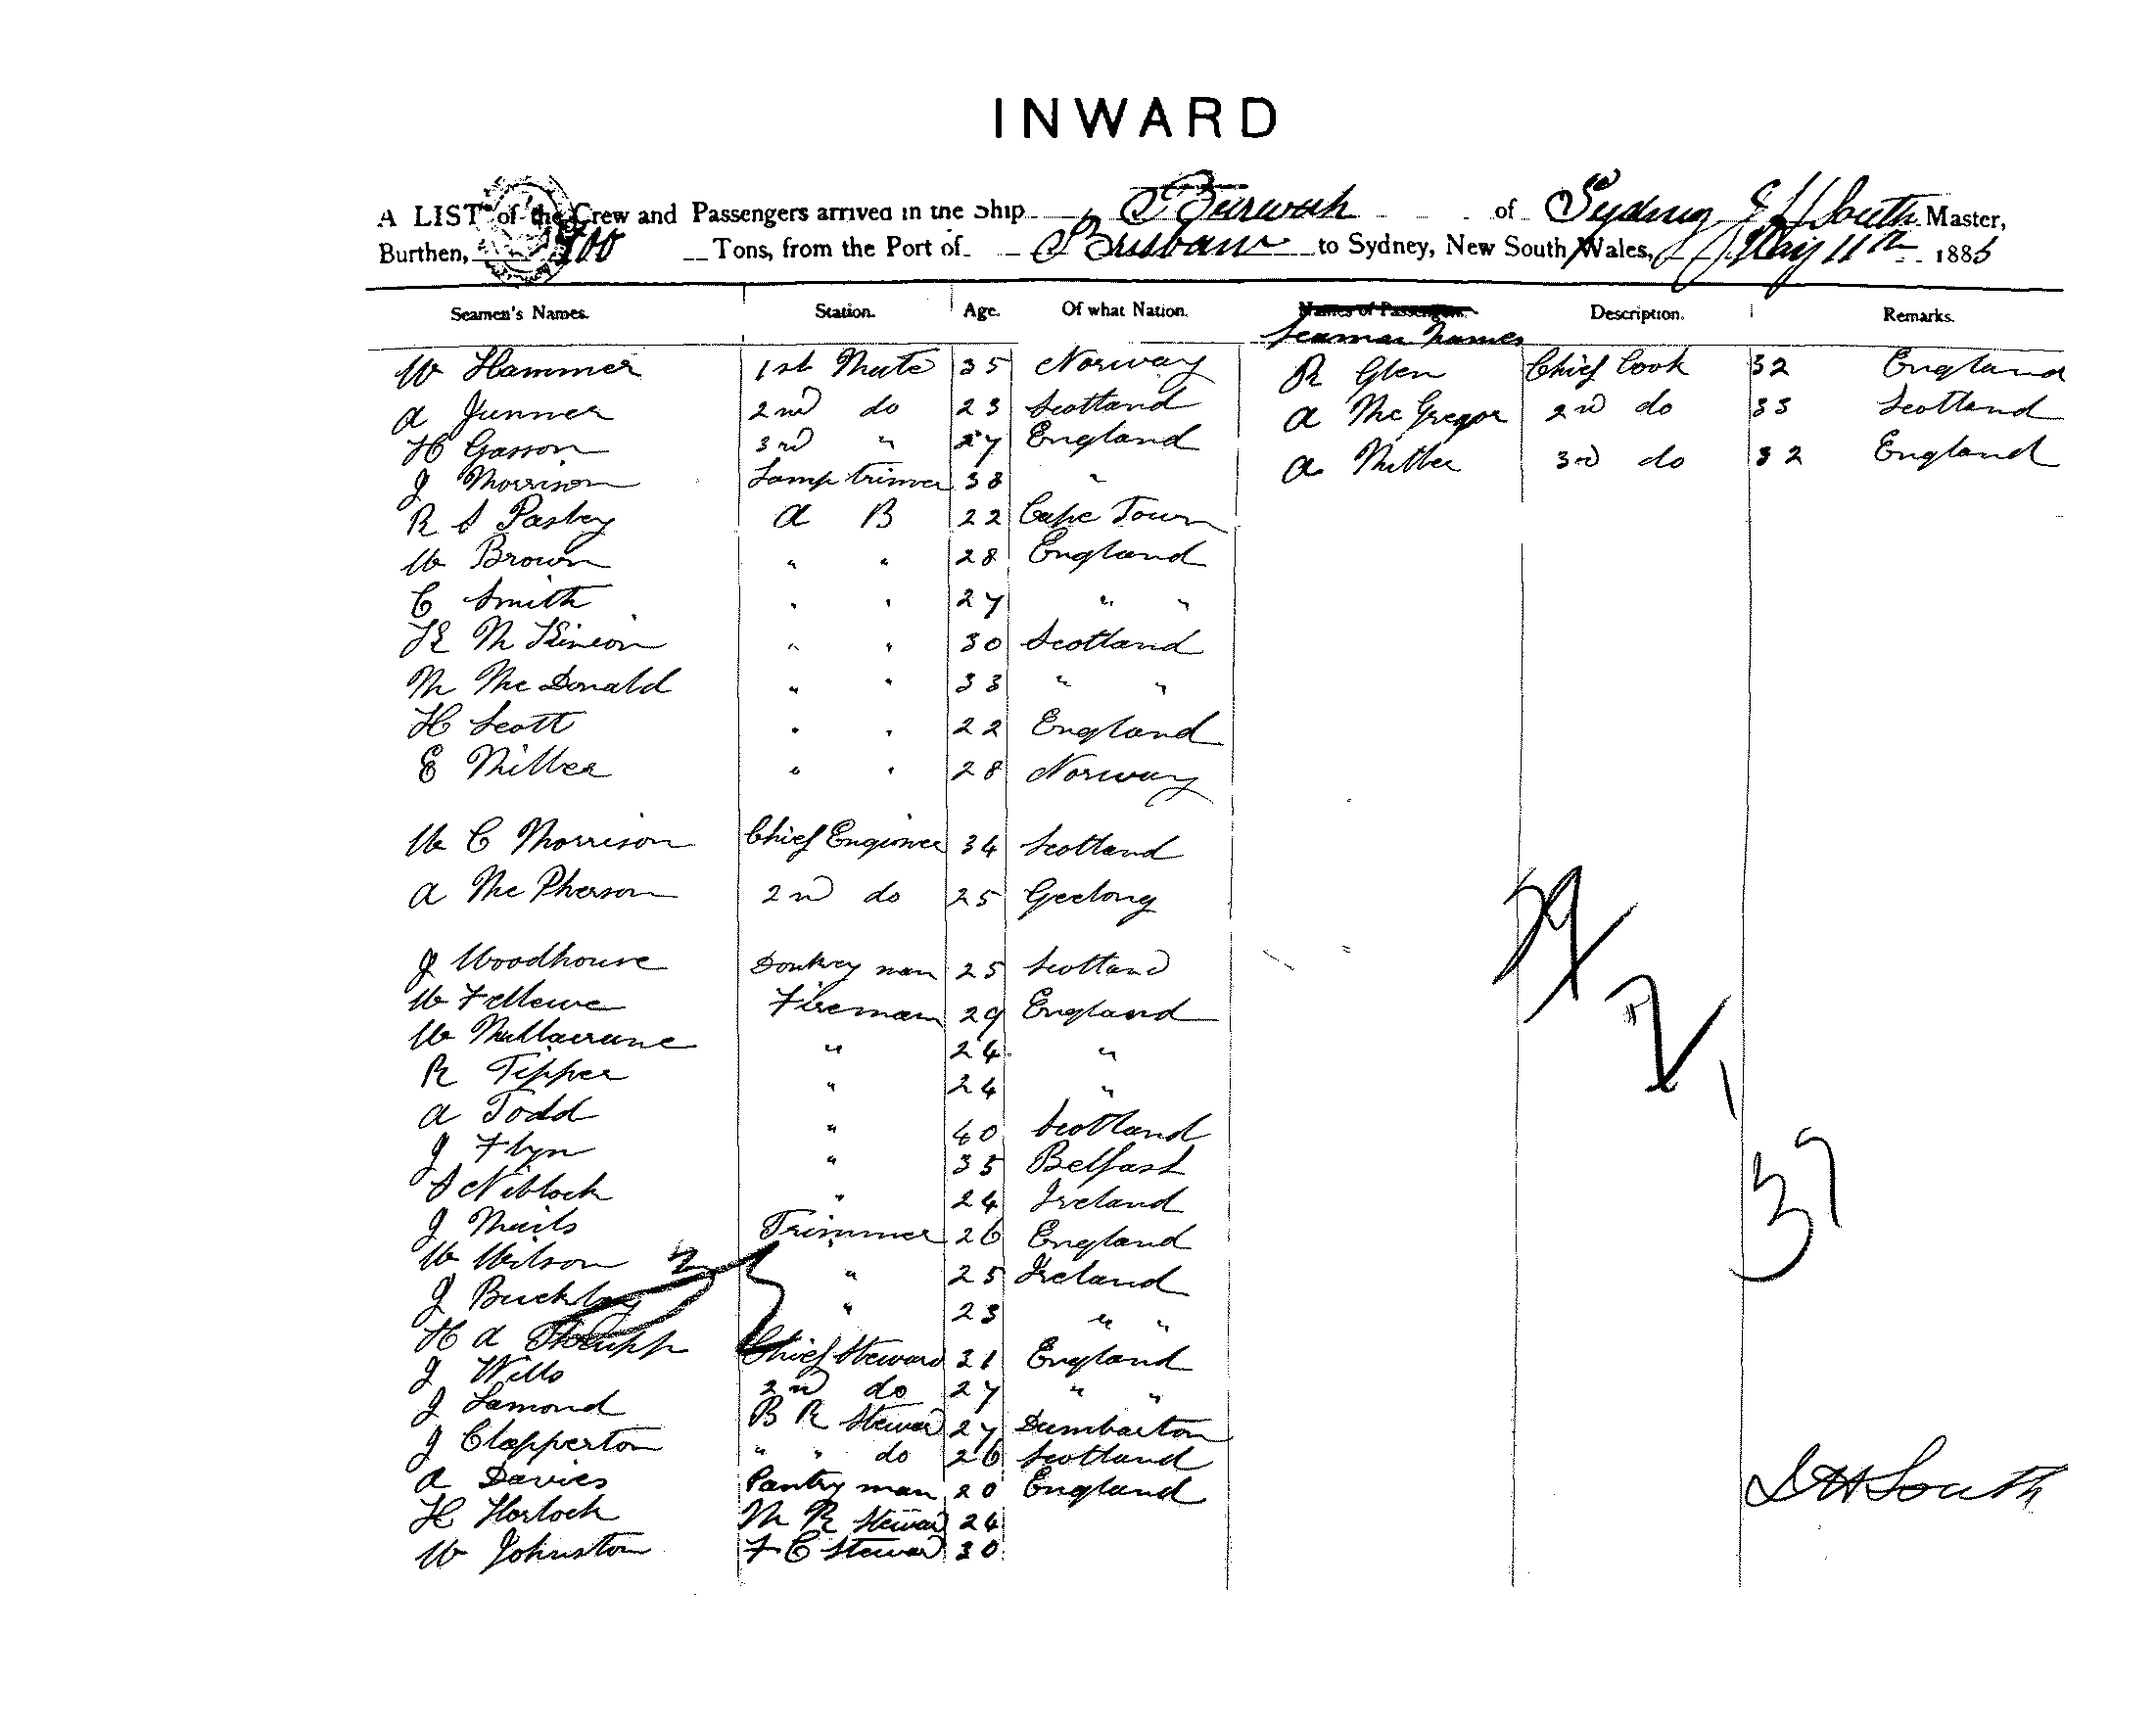 INWARD
A LIST of the Crew and Passengers arrived in the Ship Burwah of Sydney South Master,
Burthen, Tons, from the Port of Brisbane to Sydney, New South Wales, May 11th 1885
Seamen's Names. Station. Age. Of what Nation. Names of Passengers. Description. Remarks.
Seamen Names
W Hammer 1st Mate 35 Norway R Glen Chief Cook 32 England
A Junner 2nd do 23 Scotland A McGregor 2nd do 33 Scotland
H Gasson 3rd " 27 England A Miller 3rd do 32 England
J Morrison Lamp trimer 38 "
R S Pasley A B 22 Cape Town
W Brown " " 28 England
C Smith " " 27 " "
M 30 Scotland
M McDonald " " 33 " "
H Scott " " 22 England
E Miller " " 28 Norway
W C Morrison Chief Engineer 34 Scotland
A McPherson 2nd do 25 Geelong
J Woodhouse Donkey man 25 Scotland
W Fireman 29 England
W " 24 "
R Tipper " 24 "
A Todd " 40 Scotland
J Flyn " 35 Belfast
S Niblock " 24 Ireland
J Trimmer 26 England
W Wilson " 25 Ireland
J Buckley " 23 " "
H A Chief Steward 31 England
J Wills 2nd do 27 " "
J Lamond B R Steward 27 Dumbarton
J Clapperton " " do 26 Scotland
A Davies Pantry man 20 England
H Horlock M R Steward 24
W Johnston F C Steward 30
39
2
37
South